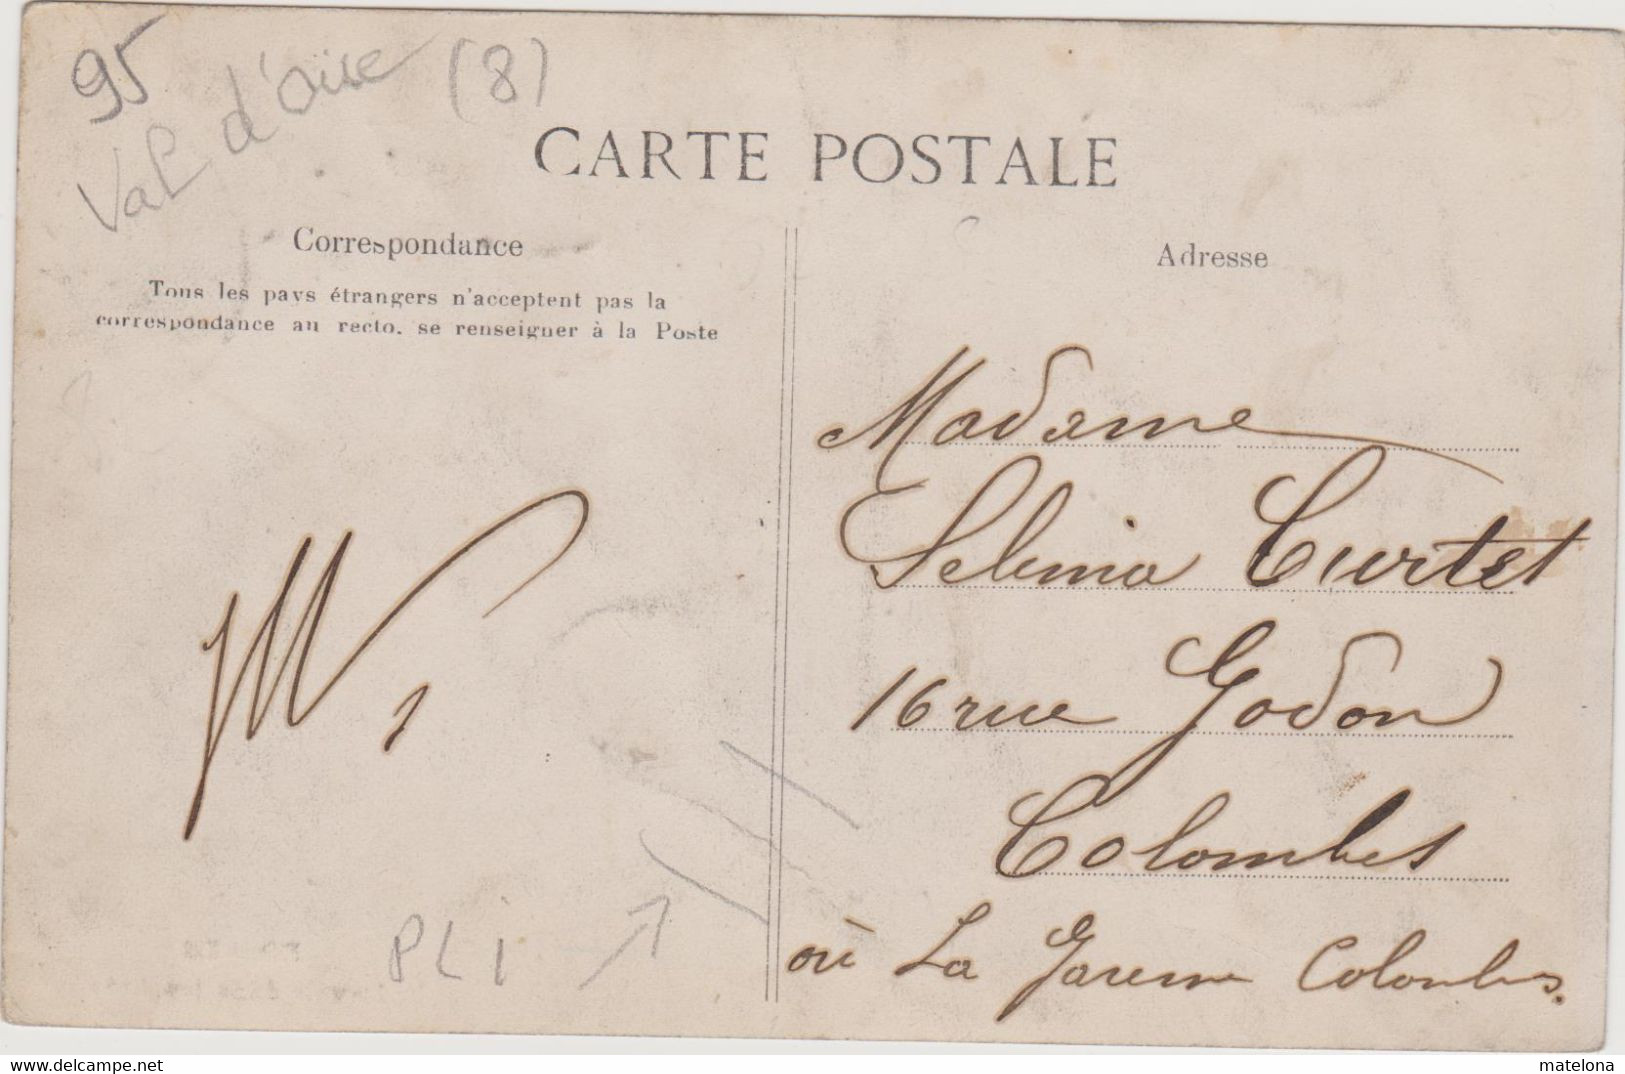 95
Val d'Oise (8)
CARTE POSTALE
Correspondance
Tous les pays étrangers n'acceptent pas la
correspondance au recto. se renseigner à la Poste
PLI
Adresse
Madame
Curtet
16 rue Godon
Colombes
où La Garenne Colombes.
www.delcampe.net
matelona